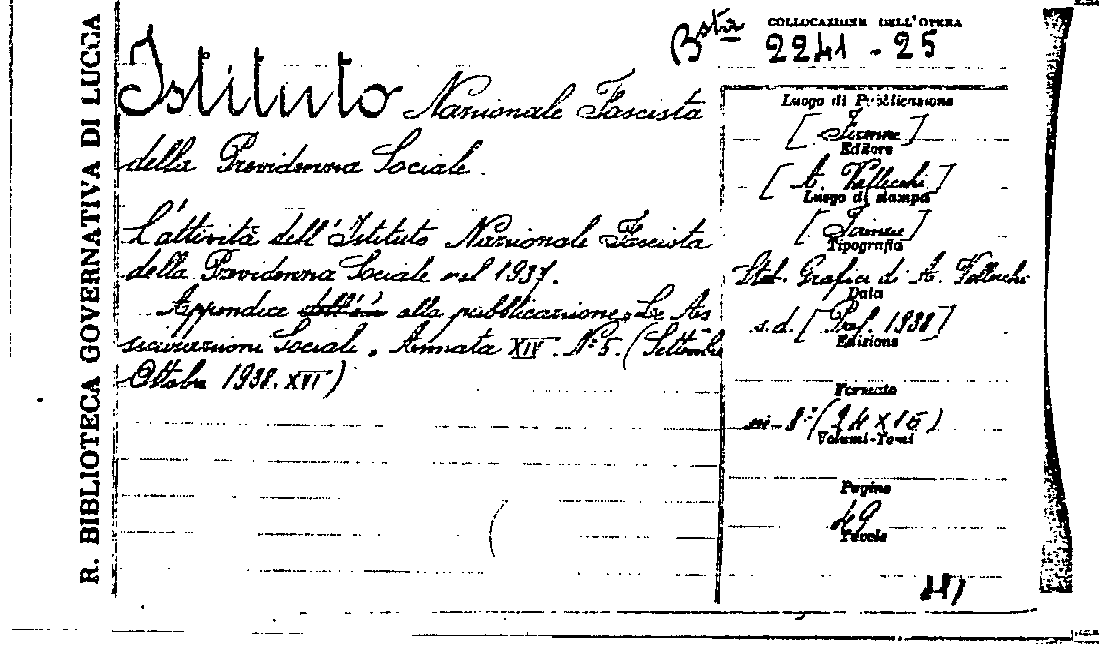 R. BIBLIOTECA GOVERNATIVA DI LUCCA
COLLOCAZIONE DELL'OPERA
Bsta 2241 - 25
Istituto Nazionale Fascista
della Previdenza Sociale.
L'attività dell'Istituto Nazionale Fascista
della Previdenza Sociale nel 1937.
Appendice alla pubblicazione "Le As
sicurazioni Sociale" Annata XIV. N° 5. (Settembre
Ottobre 1938. XVI)
Luogo di Pubblicazione
[Firenze]
Editore
[A. Vallecchi]
Luogo di stampa
[Firenze]
Tipografia
Stab. Grafici di A. Vallecchi
Data
s.d. [Pref. 1938]
Edizione
Formato
in-8° (24 X 16)
Volumi-Tomi
Pagine
49
Tavole